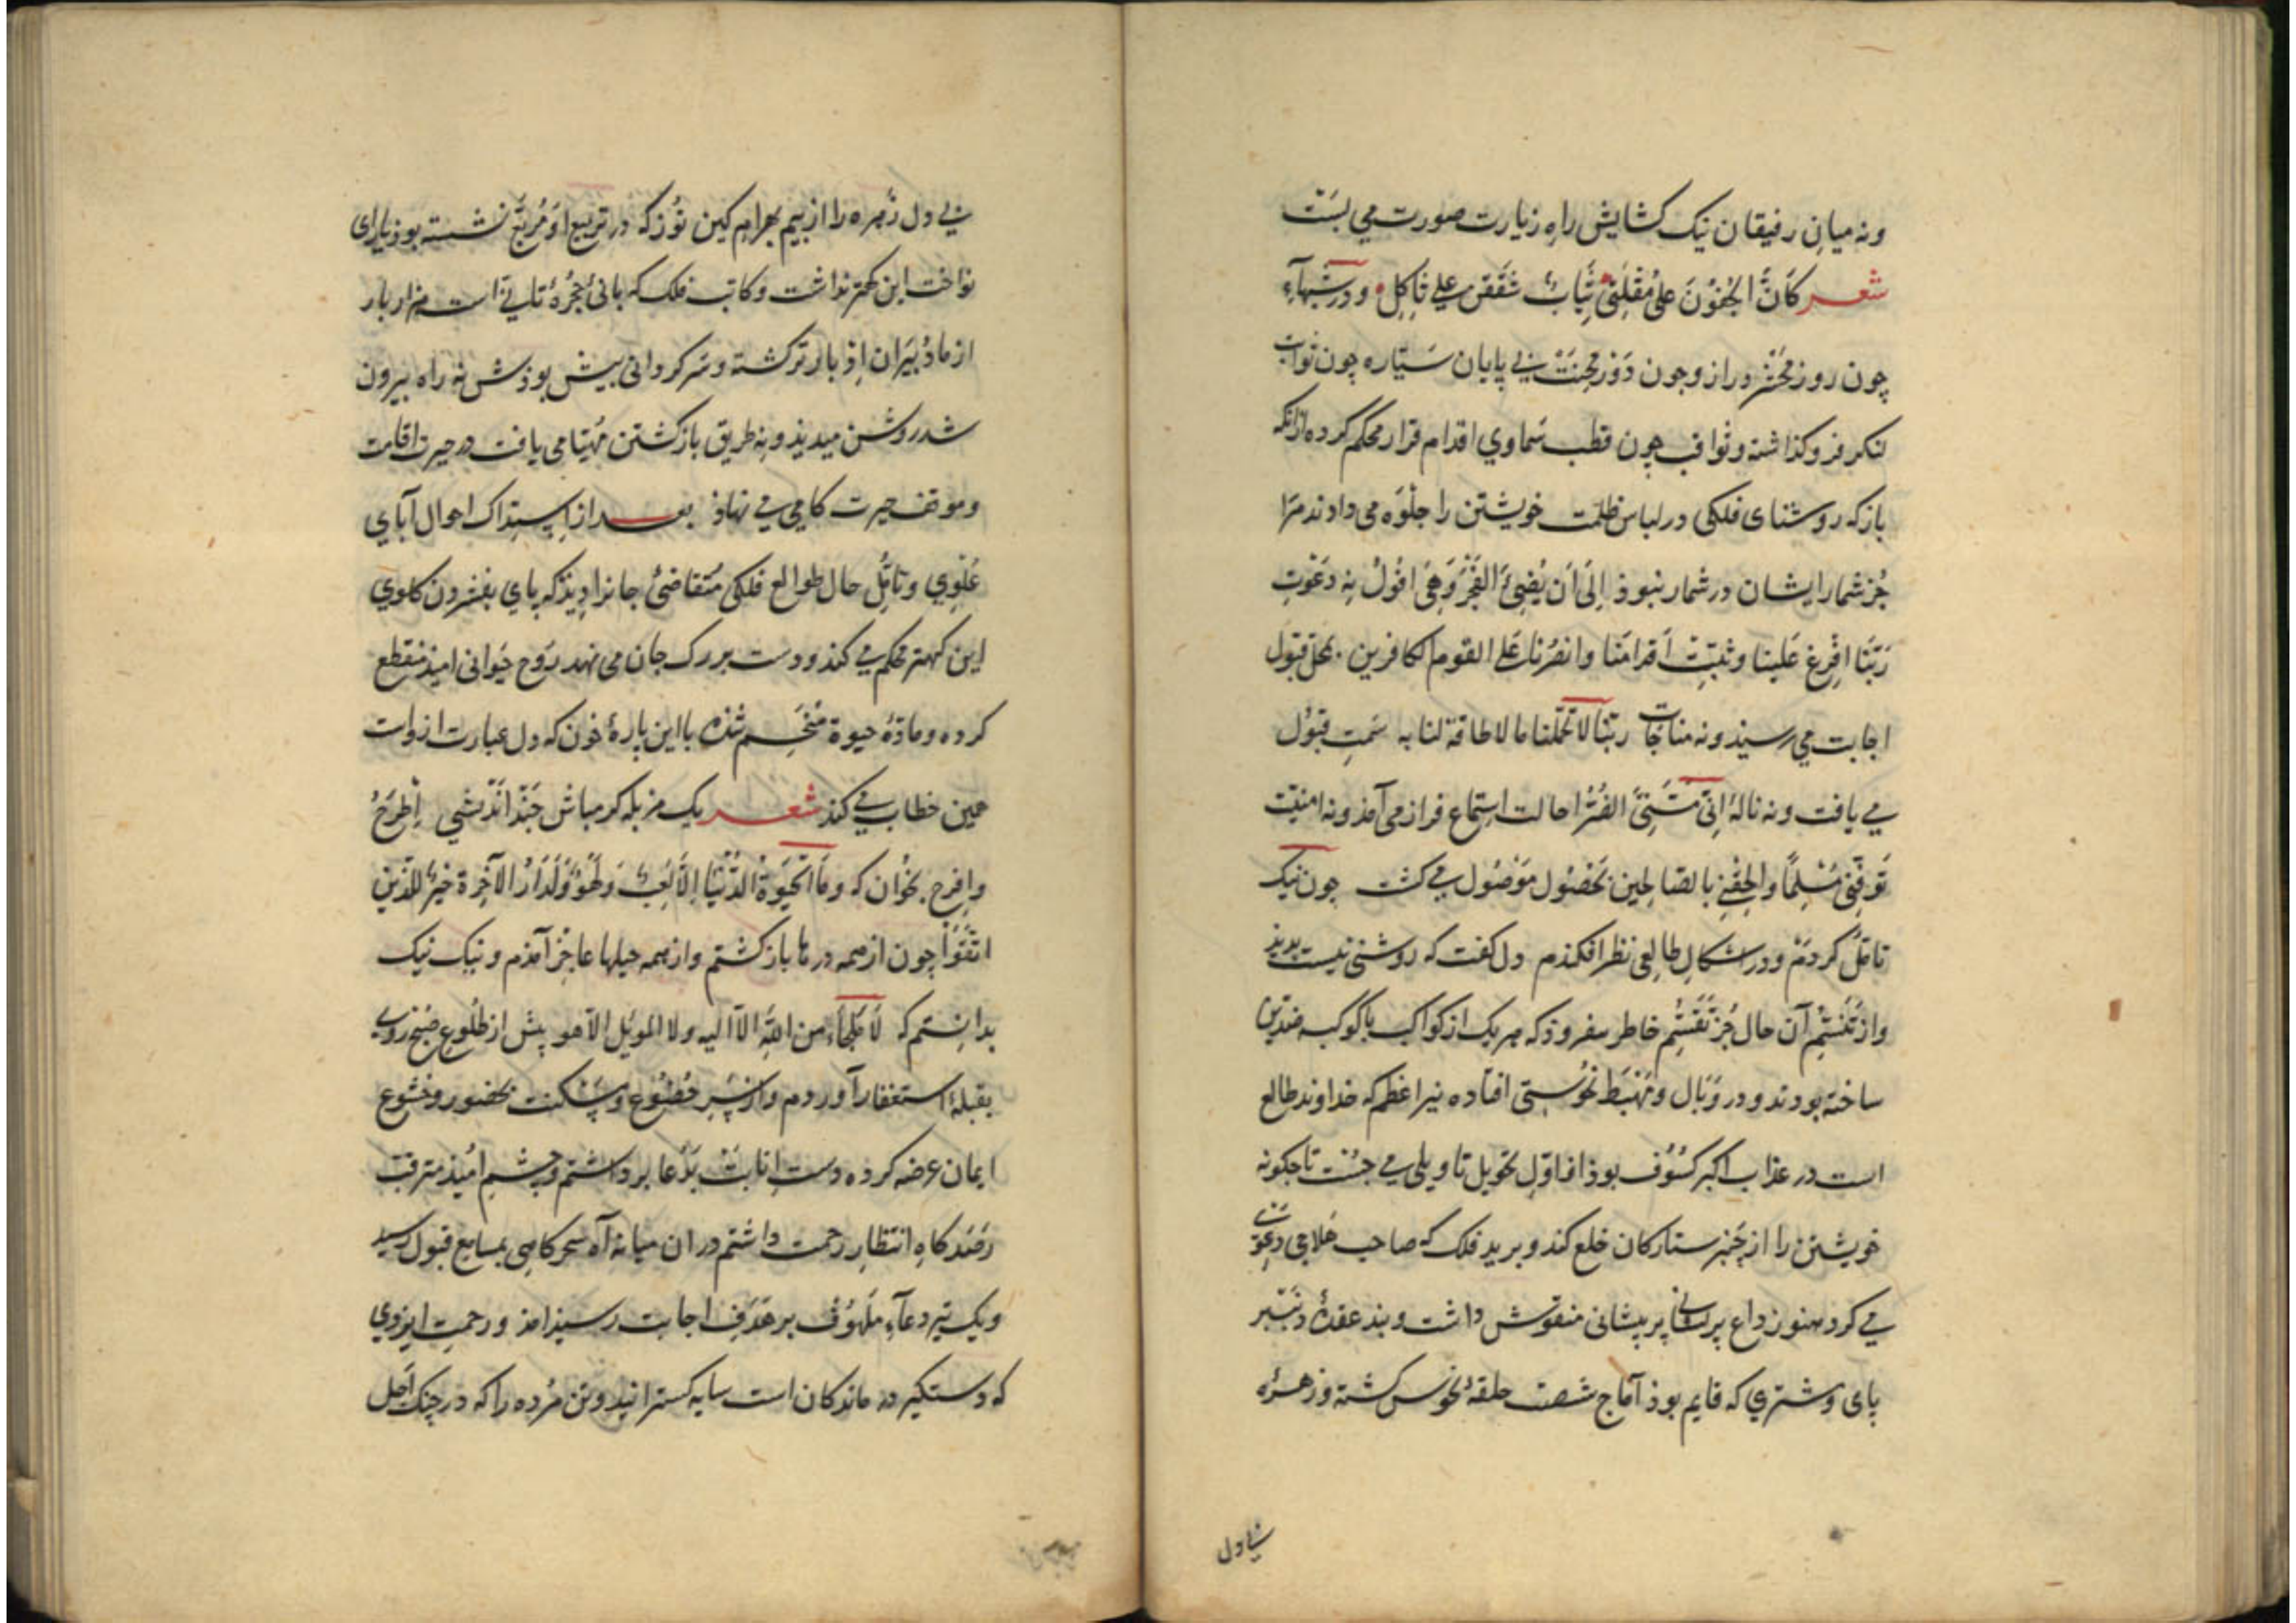 ونه میانِ رفیقان نیک کشایش راهِ زیارت صورت می بست
شعر کَاَنَّ الجُفُوْنَ عَلیٰ مُقْلَتِیْ ثِیَابٌ شُقِقْنَ علی ثاکِلِ ودر شبهآءِ
چون روزِ مَحْشَر دراز وجون دَوْرِ مِحْنَتْ بی پایان سَیّاره چون ثوابت
لنکر فروکذاشته وثواقب چون قطب سَماوی اقدام قرار محکم کرده ازانکه
بازکه روشنای فلکی در لباس ظلمت خویشتن را جلْوَه می دادند مَرَا
جُز شمار ایشان در شمار نبوذ اِلَیٰ اَن یُضِئَ الفَجْرُ وَهِیَ افُولُ نه دَعْوتِ
رَبَّنَا افْرِغ عَلَینا وثبِّتْ اَقدامَنا وانصُرْنا عَلَی القوم الکافرین بمحل قبول
اجابت می رسیذ ونه مناجات ربّنا لا تُحمّلنا ما لا طاقة لنا به سَمتِ قبُول
می یافت ونه نالهٔ اِنّی مَسَّنِیَ الضُرُّ احالت استماع فراز می آمذ ونه امنیّت
تَوَفَّنِی مُسْلِمًا واَلحِقْنِی بالصّالِحین بحُصُول مَوْصُول می کشت جون نیک
تامّل کردم ودر اشکال طالعی نظر افکندم دل کفت که روشنی نیست بدید
واز تَنَسُّم آن حال جُز تَقَسُّمِ خاطر نیفروذ که هر یک از کواکب با کوکبه ضدّین
ساخته بودند ودر وَبَال ومَهْبَط نحُوستی افتاده نیّر اعظم که خداوند طالع
است در عذاب اکبر کسُوُف بوذ از اوّلِ تحویل تاویلی می جُسْت تا چکونه
خویشتن را از چَنبرِ ستارکان خلع کند وبرید فلک که صاحب فَلاحی دعوی
می کرد هنوز داغ پریشانی بر پیشانی منقوش داشت وبند عقدهٔ ذنب بر
پای ومشتری که قایم بوذ آماج شصت حلقهٔ نحوس کشته وزهرهٔ
بی دل
بی دل زُهره را از بیم بهرام کین توز که در تربیع او مُربَّع نشسته بوذ یارای
نواخت این کهتر نداشت وکاتب فلک که بانی حُجْرهٔ تانی است هزار بار
از مادُبیَران اِدْبار ترکشته وسرکردانی بیش بوذش نه راه بیرون
شدروشن میدیذ ونه طریق بازکشتن مُهیّا می یافت در حیرت اقامت
وموقف حیرت کامی می نهاذ بعد از استدراک احوال آبای
عُلْوِی وتامّل حال طوالع فلکی مُتقاضیُ جانرا دیذکه پای بفشردن کلوی
این کهتر محکم می کند ودست بر رک جان می نهد رَوح حیَوانی امیذ منقطع
کرده ومادّهٔ حیوة منحسم شذه با این پارهٔ خون که دل عبارت از وست
همین خطاب می کند شعر یک مزبله کو مباش جَنْد اندیشی اِطْرَحْ
وافرح بخْوان که وَمَا الحَیٰوةُ الدُّنْیَا اِلَّا لَعِبٌ وَلَهْوٌ وَلَدَارُ الاٰخِرَة خَیْرٌ لِلَّذِینَ
اتَّقَوْا چون از همه درها بازکشتم واز همه حیلها عاجز آمذم ونیک نیک
بدانستم که لَا مَلْجَاءَ من اللّٰه الّا الیه ولا الموئل الّا هو پیش از طُلُوعِ صُبْح روی
بقبلهٔ استغفار آوردم واز سَر خُضُوع ومَسْکنت بحضور وخشوع
ایمان عرضه کرده دستِ اِنابَتْ بدُعا برداشتم وچشمِ امُیذ مترقب
رَصَدکاهِ انتظارِ رحمت داشتم دران میانه آه سحرکاهی بمسامع قبول رسید
ویک تیر دعآءِ ملَهُوف بر هَدَفِ اجابت رسیذ امذ ورحمتِ ایزدی
که دستکیرِ درماندکان است سایه کسترانید وتن مُرده را که در چنک اَجَل